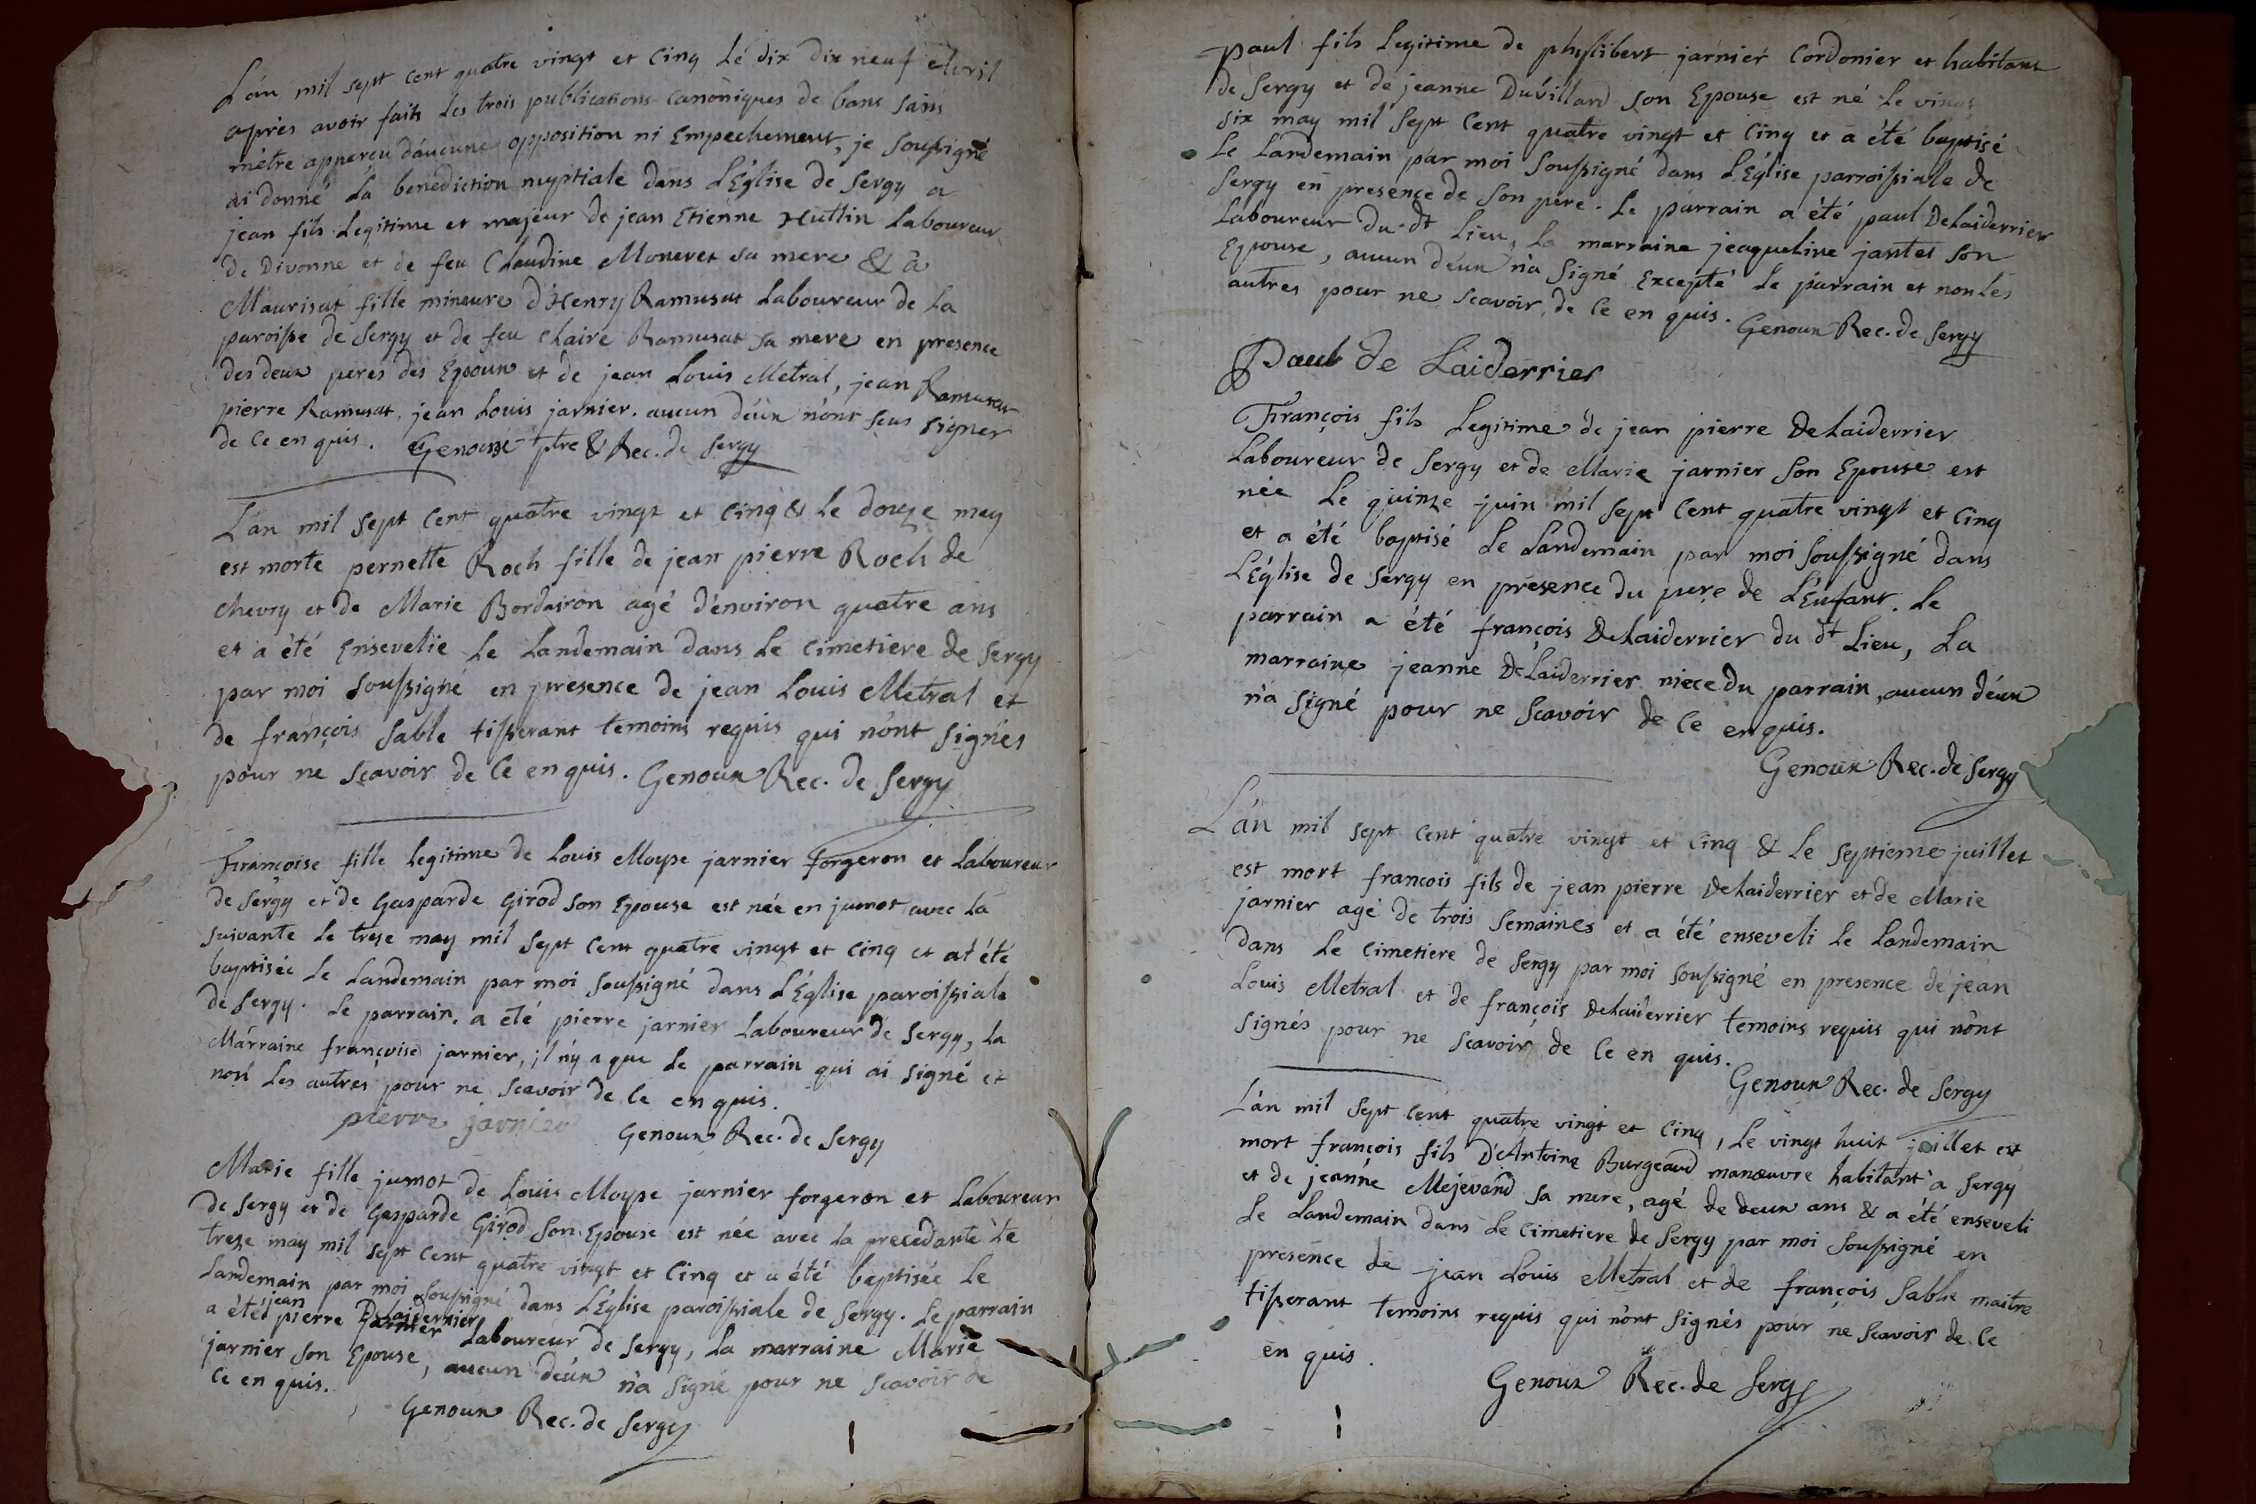 L'an mil sept cent quatre vingt et cinq le dix dix neuf Avril
après avoir faits les trois publications canoniques de bans sans
m'être apperçu d'aucune opposition ni Empechement, je soussigné
ai donné la benediction nuptiale dans L'Église de Sergy a
jean fils Legitime et majeur de jean Etienne Huttin Laboureur
de Divonne et de feu Claudine Moneret sa mere & à
Maurisat fille mineure d'Henry Ramusat Laboureur de la
paroisse de Sergy et de feu Claire Ramusat sa mere en presence
des deux peres des Epoux et de jean Louis Metral, jean Ramusat
pierre Ramusat, jean Louis jarnier. aucun d'eux n'ont seus signer
de ce en quis. Genoux ptre & Rec. de Sergy
L'an mil sept cent quatre vingt et cinq & le douze may
est morte pernette Roch fille de jean pierre Roch de
chevry et de Marie Bordairon agé d'environ quatre ans
et a été Ensevelie le Landemain dans le cimetiere de Sergy
par moi soussigné en presence de jean Louis Metral et
de françois Sable tisserant temoins requis qui n'ont signés
pour ne scavoir de ce en quis. Genoux Rec. de Sergy
Françoise fille legitime de Louis Moyse jarnier forgeron et Laboureur
de Sergy et de Gasparde Girod son Epouse est née en jumot avec la
suivante le treze may mil sept cent quatre vingt et cinq et at été
baptisée le Landemain par moi soussigné dans L'Église paroissiale
de Sergy. Le parrain a été pierre jarnier Laboureur de Sergy, la
Marraine françoise jarnier, il n'y a que le parrain qui ai signé et
non les autres pour ne scavoir de ce en quis.
pierre jarnier
Genoux Rec. de Sergy
Marie fille jumot de Louis Moyse jarnier forgeron et Laboureur
de Sergy et de Gasparde Girod son Epouse est née avec la precedante le
treze may mil sept cent quatre vingt et cinq et a été baptisée le
Landemain par moi soussigné dans L'Église paroissiale de Sergy. Le parrain
a été jean pierre Delaiderrier Laboureur de Sergy, la marraine Marie
jarnier son Epouse, aucun d'eux n'a signé pour ne scavoir de
ce en quis.
Genoux Rec. de Sergy
Paul fils Legitime de philibert jarnier Cordonier et habitant
de Sergy et de jeanne Duvillard son Epouse est né le vingt
six may mil sept cent quatre vingt et cinq et a été baptisé
le Landemain par moi soussigné dans L'Église parroissiale de
Sergy en presence de son pere. Le parrain a été paul Delaiderrier
Laboureur du dt Lieu, la marraine jeaqueline jantet son
Epouse, aucun d'eux n'a signé Excepté le parrain et non les
autres pour ne scavoir de ce en quis. Genoux Rec. de Sergy
Paul de Laiderrier
François fils Legitime de jean pierre Delaiderrier
Laboureur de Sergy et de Marie jarnier son Epouse est
née le quinze juin mil sept cent quatre vingt et cinq
et a été baptisé le Landemain par moi soussigné dans
L'Église de Sergy en presence du pere de L'Enfant. Le
parrain a été françois Delaiderrier du dt Lieu, la
marraine jeanne DeLaiderrier niece du parrain, aucun d'eux
n'a signé pour ne scavoir de ce en quis.
Genoux Rec. de Sergy
L'an mil sept cent quatre vingt et cinq & le septieme juillet
est mort françois fils de jean pierre Delaiderrier et de Marie
jarnier agé de trois semaines et a été enseveli le Landemain
dans le cimetiere de Sergy par moi soussigné en presence de jean
Louis Metral et de françois Delaiderrier temoins requis qui n'ont
signés pour ne scavoir de ce en quis.
Genoux Rec. de Sergy
L'an mil sept cent quatre vingt et cinq, le vingt huit juillet est
mort françois fils d'Antoine Burgeaud manœuvre habitant a Sergy
et de jeanne Mejevand sa mere, agé de deux ans & a été enseveli
le Landemain dans le cimetiere de Sergy par moi soussigné en
presence de jean Louis Metral et de françois Sable maitre
tisserant temoins requis qui n'ont signés pour ne scavoir de ce
en quis.
Genoux Rec. de Sergy